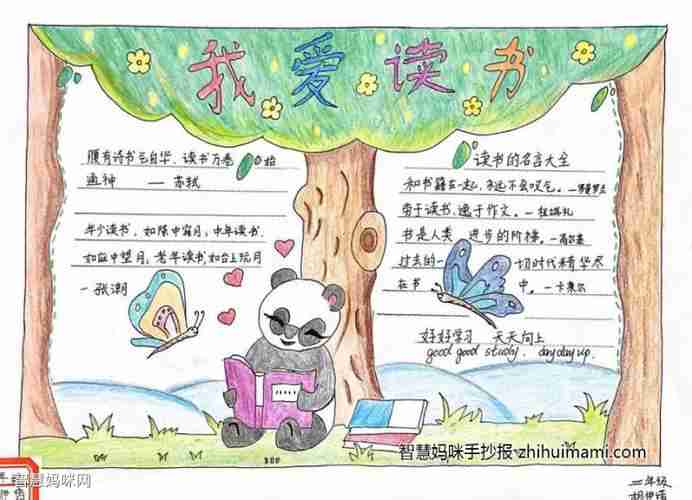 我爱读书
腹有诗书气自华,读书万卷始
通神 — 苏轼
年少读书,如隙中窥月;中年读书,
如庭中望月;老年读书,如台上玩月
— 张潮
读书的名言大全
和书籍在一起,永远不会叹气。—罗曼罗兰
劳于读书,逸于作文。—程端礼
书是人类 进步的阶梯。—高尔基
过去的一 切时代精华尽
在书 中。—卡莱尔
好好学习 天天向上
good good study. day day up.
智慧妈咪手抄报 zhihuimami.com
智慧妈咪网
二年级